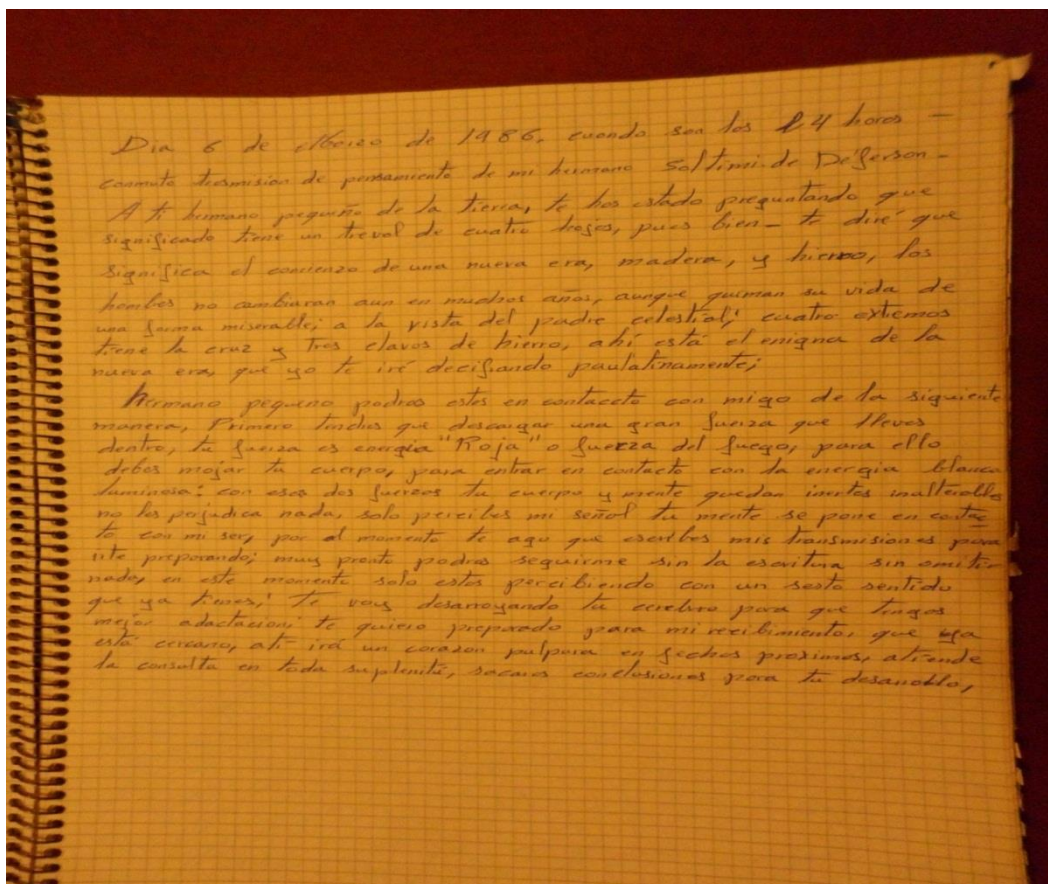 Dia 6 de Marzo de 1986, cuando son las 24 horos —
conmuto trasmision de pensamiento de mi hermano Soltimi-de De'Gerson -
A ti hermano pequeño de la tierra, te has estado preguntando que
significado tiene un trevol de cuatro hojas, pues bien - te diré que
significa el comienzo de una nueva era, madera, y hierro, los
hombes no cambiaran aun en muchos años, aunque quiman su vida de
una forma miserable; a la vista del padre celestial; cuatro extremos
tiene la cruz y tres clavos de hierro, ahí está el enigna de la
nueva era, que yo te iré decifiando paulatinamente;
hermano pequeno podras estes en contaceto con migo de la siguiente
manera, Primero tendras que descargar una gran fuerza que llevas
dentro, tu fuerza es energia "Roja" o fuerza del fuego, para ello
debes mojar tu cuerpo, para entrar en contacto con la energia blanca
luminosa: con esas dos fuerzas tu cuerpo y mente quedan inertes inalterables
no les perjudica nada, solo percibes mi señal tu mente se pone en contac
to con mi ser, por el momento te ago que escribes mis transmisiones para
irte preparando; muy pronto podras seguirme sin la escritura sin omitir
nada, en este momento solo estas percibiendo con un sesto sentido
que ya tienes; te voy desarroyando tu cerebro para que tengas
mejor adactacion; te quiero preparado para mi recibimiento, que ya
está cercano, ati irá un corazon pulpura en fechas proximas, atiende
la consulta en toda suplenitú, sacaras conclusiones para tu desarrollo,